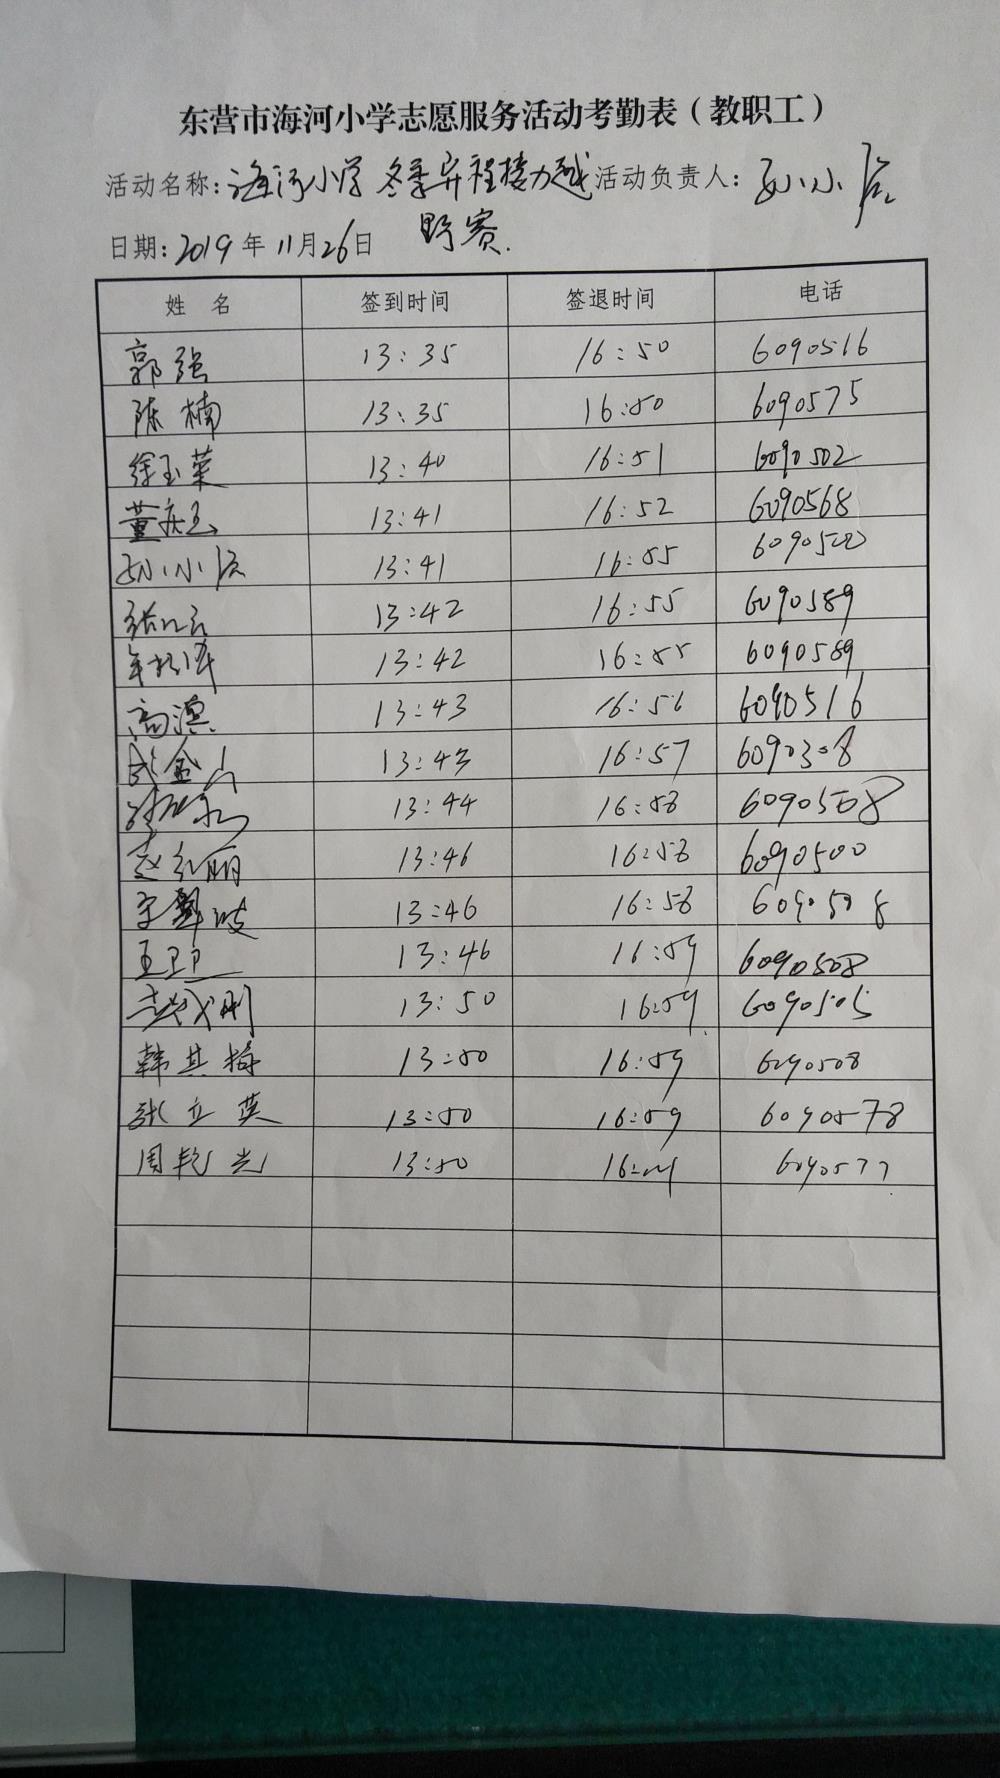 东营市海河小学志愿服务活动考勤表（教职工）
活动名称：海河小学冬季异程接力越 活动负责人：孙小
野赛.
日期：2019年11月26日
姓 名 签到时间 签退时间 电话
郭强 13:35 16:50 6090516
陈楠 13:35 16:50 6090575
徐玉菜 13:40 16:51 6090502
董庆玉 13:41 16:52 6090568
孙小 13:41 16:55 6090500
张 13:42 16:55 6090589
13:42 16:55 6090589
高源 13:43 16:56 6090516
武金山 13:43 16:57 6090308
13:44 16:58 6090508
赵红丽 13:46 16:58 6090500
13:46 16:58 6090508
王卫 13:46 16:59 6090508
13:50 16:59 6090505
韩其梅 13:50 16:59 6090508
张立英 13:50 16:59 6090578
周乾光 13:50 16: 6090577